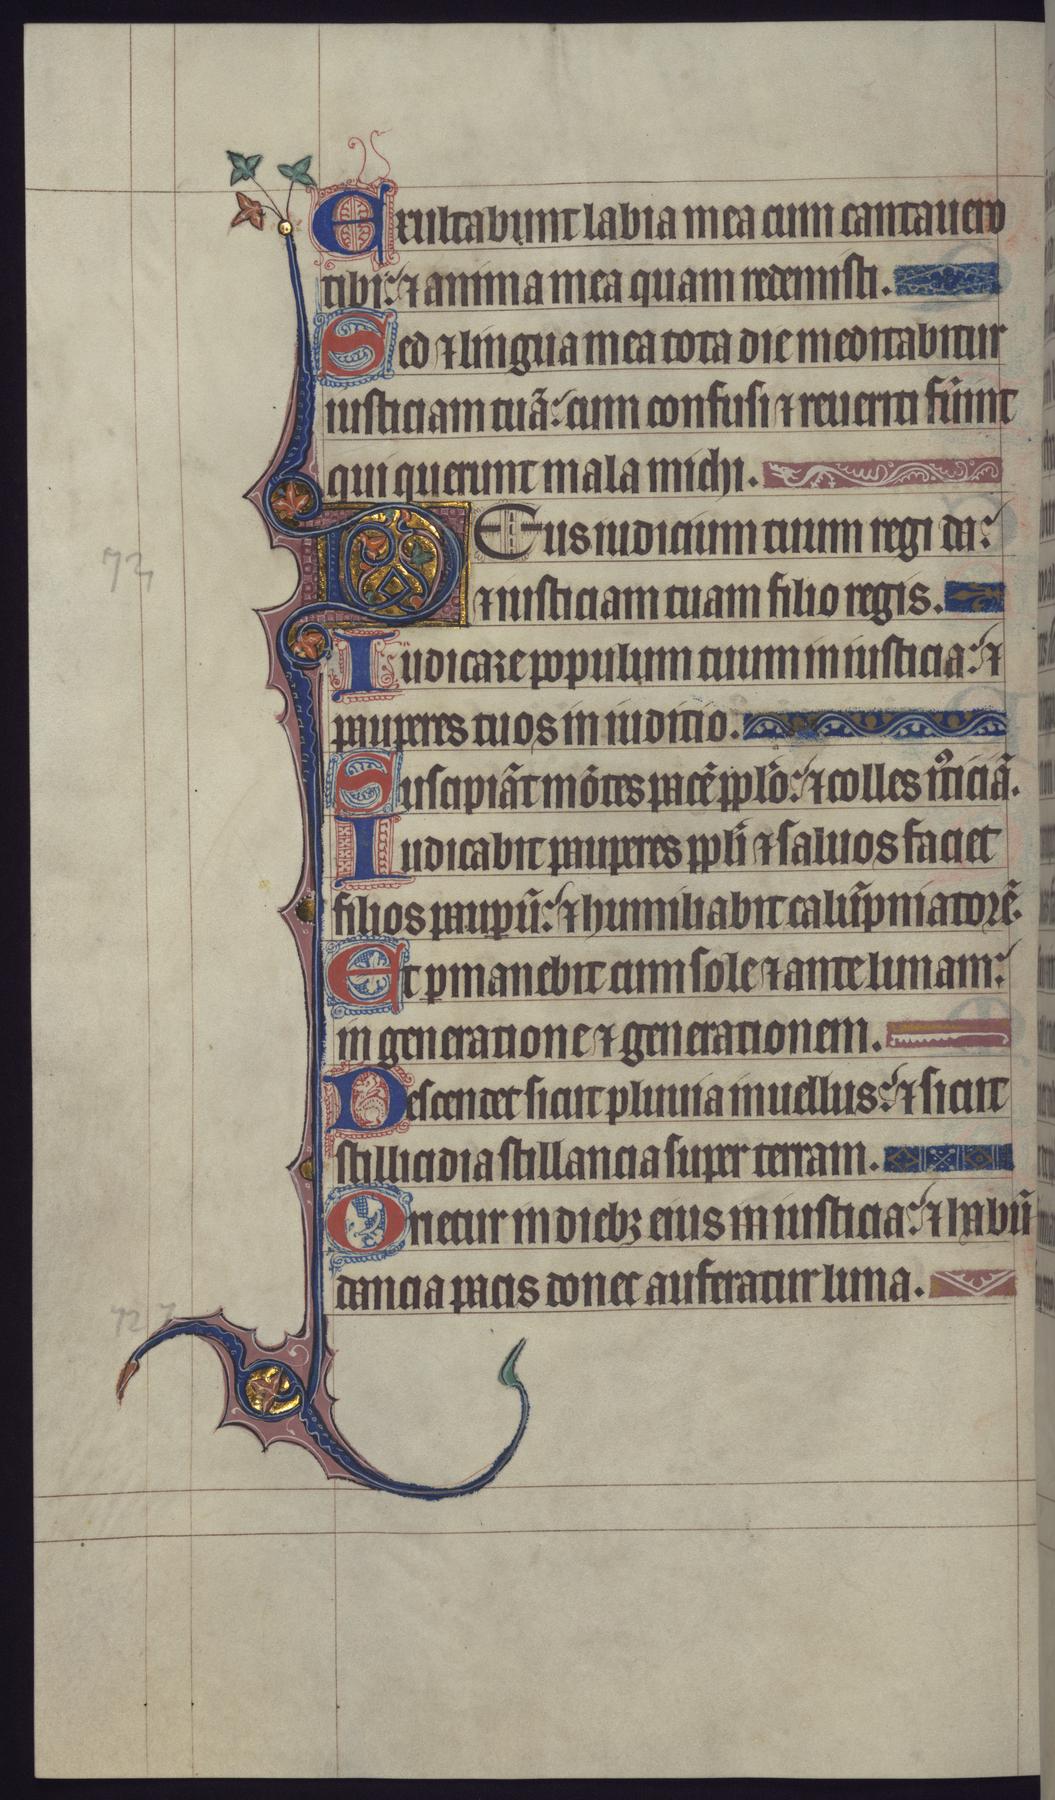 Exultabunt labia mea cum cantauero
tibi: ⁊ anima mea quam redemisti.
Sed ⁊ lingua mea tota die meditabitur
iusticiam tuā: cum confusi ⁊ reueriti fūint
qui querunt mala michi.
DEus iudicium tuum regi da:
72
⁊ iusticiam tuam filio regis.
Iudicare populum tuum in iusticia: ⁊
pauperes tuos in iuditio.
Suscipiāt mōtes pacē pplō: ⁊ colles iᷤticiā.
Iudicabit pauperes ppli ⁊ saluos faciet
filios paupū: ⁊ humiliabit calūpniatorē.
Et pmanebit cum sole ⁊ ante lunam:
in generatione ⁊ generationem.
Descendet sicut pluuia in uellus: ⁊ sicut
stillicidia stillancia super terram.
Orietur in diebꝫ eius in iusticia: ⁊ habū
dancia pacis donec auferatur luna.
72 7